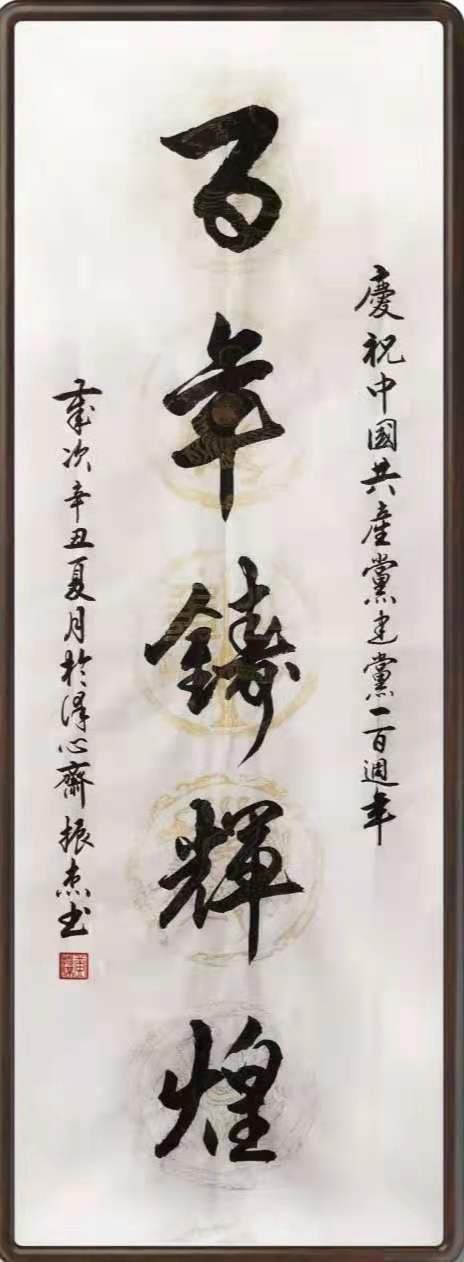 慶祝中國共產黨建黨一百週年
百年鑄輝煌
歲次辛丑夏月於澤心齋振杰书